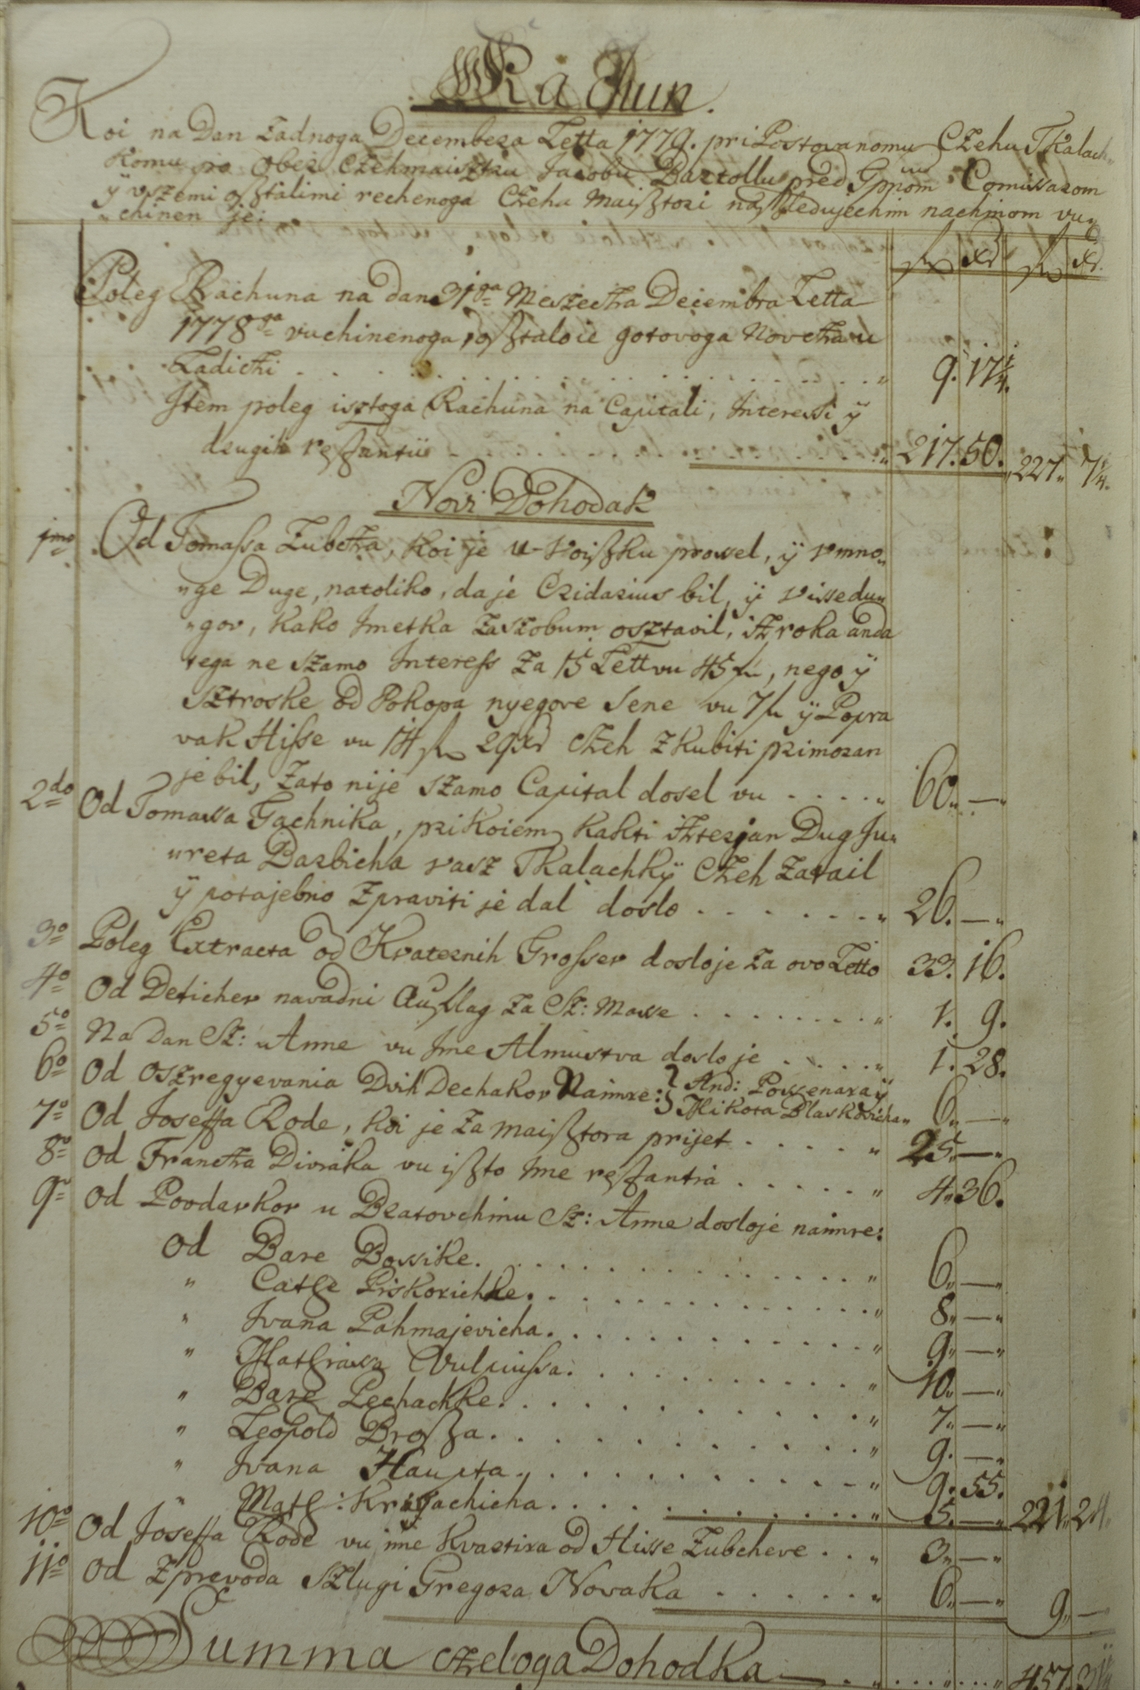 Rachun.
Koi na Dan Zadnoga Decembera Letta 1779. pri Postovanomu Czehu Tkalach„
komu po Obeh Czehmaisztru Jacobu Bartollu pred Gppnom Comissarom
ÿ vszemi osztalimi rechenoga Czeha Maisztori naszledujechim nachinom vu„
„chinen je:
fr xr fr xr
Poleg Rachuna na dan 31ga Meszecza Decembra Letta
1778ga vuchinenoga, osztalo ie gotovoga Novcza u
Ladichi . . . . . . „ 9. 17¼.
Item poleg isztoga Rachuna na Capitali, Interessi ÿ
drugih resztantii „ 217. 50. 227. 7¼.
Novi Dohodak
1mo Od Tomassa Zubcha, koi je u Voiszku prossel, ÿ vmno„
„ge Duge, natoliko, da je Cridarius bil, ÿ vissedu„
„gov, kako Imetka za szobum osztavil, Iz roka anda
tega ne szamo Interess za 15 Lett vu 45 fr, nego ÿ
sztroske od Pokopa nyegove Sene vu 7 fr ÿ Popra
vak Hisse vu 14 fr 29 xr Czeh zkubiti primoran
je bil, Zato nije szamo Capital dosel vu . . . . „ 60. —
2do Od Tomassa Gachnika, pri koiem kakti izterjan Dug Ju„
„reta Barbicha vasz Tkalachkÿ Czeh zatail
ÿ potajebno zpraviti je dal doslo . . . . . . „ 26. —
3o Poleg Extracta od Kvaternih Grosser dosloje za ovo Letto 33. 16.
4o Od Deticher navadni Auflag za Sz: Masse . . . . . . „ 1. 9.
5o Na Dan Sz: Anne vu Ime Almustva doslo je . . . . „ 1. 28.
6o Od oszregyevania Dvih Dechakov Naimre: And: Possenara ÿ
Mikota Blaskovicha „ 6. —
7o Od Joseffa Rode, koi je za maisztora prijet . . . . „ 25. —
8o Od Francza Divráka vu iszto Ime resztantia . . . . . „ 4. 36.
9o Od Poodavkov u Bratovchinu Sz: Anne dosloje naimre:
Od Bare Bossike. . . . . . „ 6. —
„ Cathe Piskorichke. . . . . . „ 8. —
„ Ivana Pahmajevicha. . . . . . „ 9. —
„ Mathiassa Vulpiussa. . . . . . „ 10. —
„ Bare Pechackke. . . . . . „ 7. —
„ Leopold Brosza. . . . . . „ 9. —
„ Ivana Haupta. . . . . . „ 9. 55.
„ Math: Krisachicha. . . . . . „ 5. — 221. 24.
10o Od Joseffa Rode vu ime kvartira od Hisse Zubcheve . . „ 3. —
11o Od Zprevoda Szlugi Gregora Novaka . . . . . . „ 6. — 9. —
Summa czeloga Dohodka — . . . . . 457. 31¼